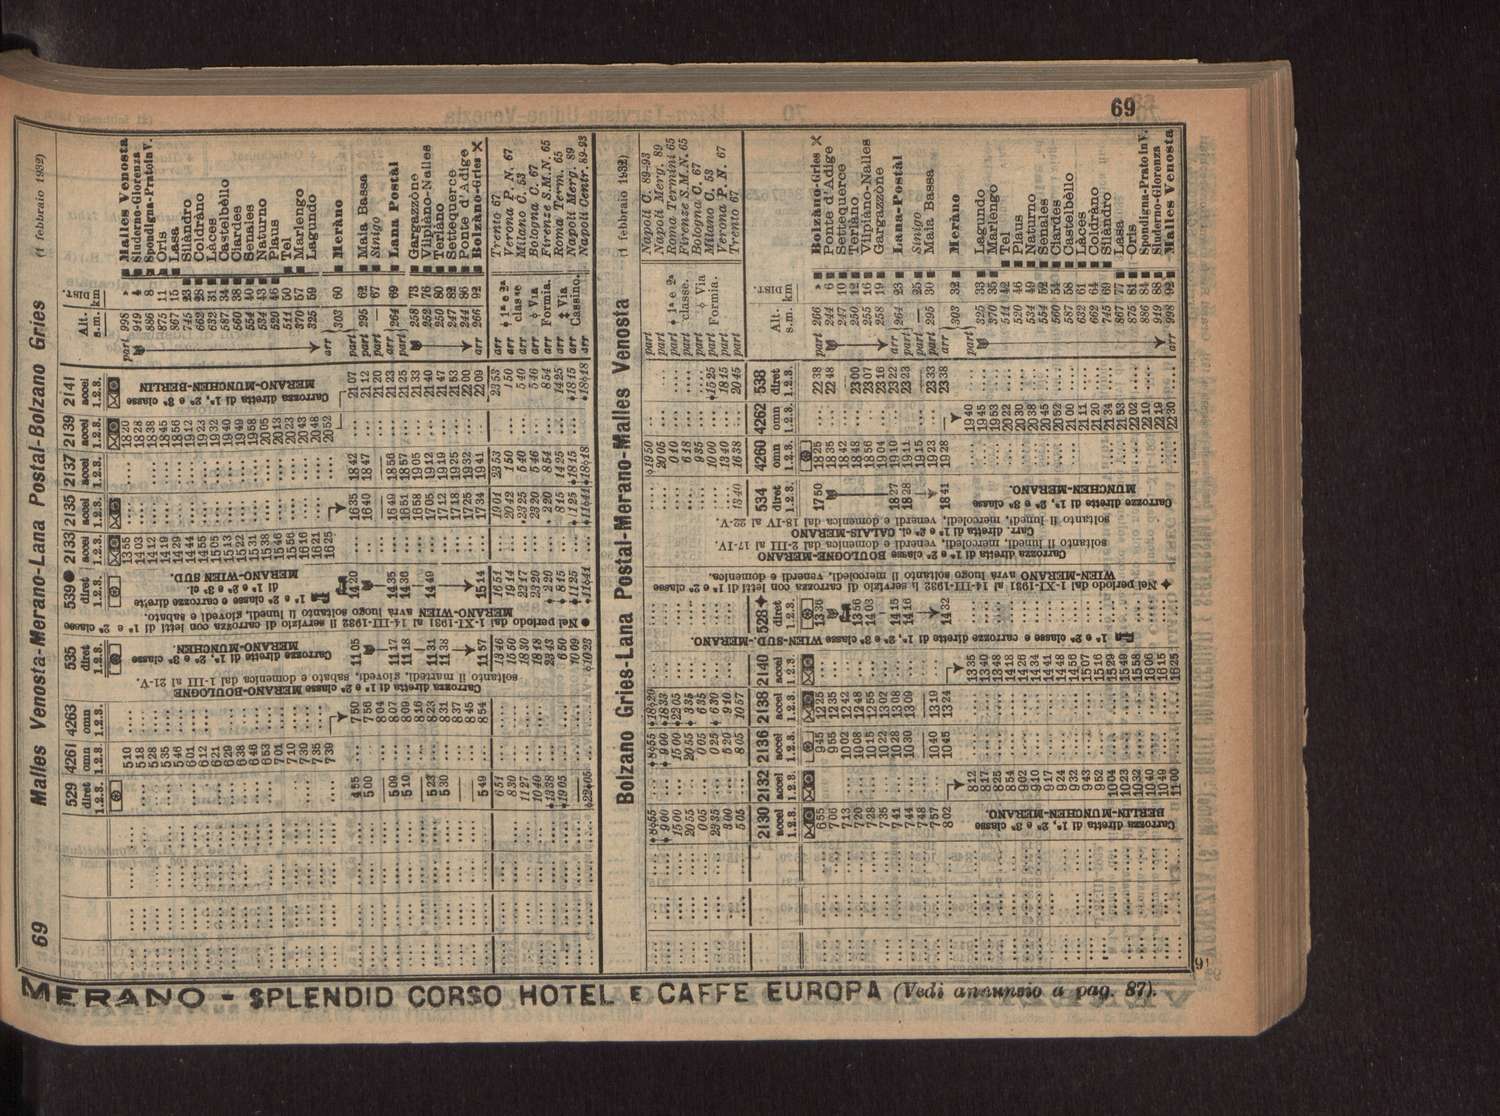 69
69 Malles Venosta-Merano-Lana Postal-Bolzano Gries (1 febbraio 1932)
529 4261 4263 535 539● 2133 2135 2137 2139 2141
diret omn omn diret diret accel accel accel accel accel
1.2.3. 1.2.3. 1.2.3. 1.2.3. 1.2.3. 1.2.3. 1.2.3. 1.2.3. 1.2.3. 1.2.3.
Alt. s.m. DIST. km
5 10 13 55 18 20 part 998 » Malles Venosta
5 18 14 03 18 28 919 4 Sluderno-Glorenza
5 28 14 12 18 38 886 8 Spondigna-Prato in V.
5 35 14 19 18 45 875 11 Oris
5 46 14 29 18 56 867 15 Lasa
6 01 14 44 19 12 745 23 Silàndro
6 12 14 55 19 23 662 28 Coldràno
6 21 15 05 19 32 632 31 Làces
6 29 15 13 19 40 587 34 Castelbèllo
6 38 15 22 19 49 560 38 Ciardes
6 46 15 31 19 58 554 40 Senales
6 53 15 38 20 05 534 43 Naturno
7 01 15 46 20 13 520 46 Plaus
7 10 15 56 20 23 511 50 Tel
7 20 16 16 20 43 370 57 Marlengo
7 35 16 21 20 48 325 59 Lagundo
7 39 16 25 20 52 arr
4 55 7 50 11 05 14 20 16 35 18 42 21 07 part 303 60 Meràno
5 00 7 56 16 40 18 47 21 12 part 295 62 Maia Bassa
8 04 21 20 part — 67 Sinigo
5 09 8 07 11 17 14 35 16 49 18 56 21 23 arr 264 69 Lana Postàl
5 10 8 09 11 18 14 36 16 51 18 57 21 25 part
8 16 16 58 19 05 21 33 258 73 Gargazzòne
5 23 8 23 11 31 14 49 17 05 19 12 21 40 252 76 Vilpiàno-Nalles
5 30 8 31 11 38 17 12 19 19 21 47 250 80 Terlàno
8 37 17 18 19 25 21 53 247 82 Settequerce
8 45 17 25 19 32 22 00 244 86 Ponte d'Adige
5 49 8 54 11 57 15 14 17 34 19 41 22 09 arr 266 92 Bolzàno-Gries
6 51 13 46 16 51 19 01 23 53 23 53 arr Trento 67
8 30 15 50 19 14 20 42 1 50 1 50 arr Verona P. N. 67
11 27 18 30 22 17 23 25 5 40 5 40 arr Milano C. 53
10 49 18 18 23 20 23 20 5 46 5 46 arr Bologna C. 67
13 38 23 43 2 20 2 20 8 54 8 54 arr Firenze S.M.N. 65
19 05 6 30 8 15 8 15 14 25 14 25 arr Roma Term. 65
10 09 11 25 11 25 18 15 18 15 arr Napoli Merg. 89
22 05 10 23 11 41 11 41 18 18 18 18 arr Napoli Centr. 89-93
1ª e 2ª classe
Via Formia.
‡ Via Cassino.
Carrozza diretta di 1ª e 2ª classe MERANO-BOULOGNE
soltanto il martedì, giovedì, sabato e domenica dal 1-III al 21-V.
Carrozze dirette di 1ª, 2ª e 3ª classe
MERANO-MÜNCHEN.
● Nel periodo dal 1-XI-1931 al 14-III-1932 il servizio di carrozza con letti di 1ª e 2ª classe
MERANO-WIEN avrà luogo soltanto il lunedì, giovedì e sabato.
1ª e 2ª classe e carrozze dirette
di 1ª e 2ª e 3ª cl.
MERANO-WIEN SUD.
Carrozza diretta di 1ª, 2ª e 3ª classe
MERANO-MÜNCHEN-BERLIN
Bolzano Gries-Lana Postal-Merano-Malles Venosta (1 febbraio 1932)
8 55 8 55 18 20 19 50 part Napoli C. 89-93
9 00 9 00 18 33 20 05 part Napoli Merg. 89
15 00 15 00 22 05 0 10 part Roma Termini 65
20 55 20 55 3 35 6 18 part Firenze S.M.N. 65
0 05 0 05 6 35 9 35 part Bologna C. 67
23 35 0 25 6 30 10 00 15 25 part Milano C. 53
3 00 5 20 9 10 13 40 18 15 part Verona P. N. 67
5 05 8 05 10 57 13 40 16 38 20 45 part Trento 67
1ª e 2ª classe.
Via Formia.
2130 2132 2136 2138 2140 528✦ 534 4260 4262 538
accel accel accel accel accel diret diret omn omn diret
1.2.3. 1.2.3. 1.2.3. 1.2.3. 1.2.3. 1.2.3. 1.2.3. 1.2.3. 1.2.3. 1.2.3.
Alt. s.m. DIST. km
6 55 9 45 12 25 13 36 17 50 18 25 22 38 part 266 » Bolzàno-Gries
7 06 9 55 12 35 18 35 22 48 244 6 Ponte d'Adige
7 13 10 02 12 42 13 56 18 42 247 10 Settequerce
7 20 10 08 12 48 14 03 18 48 23 00 250 12 Terlàno
7 28 10 15 12 55 18 56 23 07 255 16 Vilpiàno-Nalles
7 35 10 22 13 02 19 04 23 16 258 19 Gargazzòne
7 41 10 28 13 08 14 15 18 27 19 10 23 22 arr 264 23 Lana-Postàl
7 44 10 30 13 09 14 16 18 28 19 11 23 23 part
7 48 19 15 part — 25 Sinigo
7 57 10 40 13 19 19 23 23 33 part 295 30 Maia Bassa
8 02 10 45 13 24 14 32 18 41 19 28 23 38 arr 303 32 Meràno
8 12 13 35 19 40
8 17 13 40 19 45 325 33 Lagundo
8 25 13 48 19 53 370 35 Marlengo
8 54 14 18 20 22 511 42 Tel
9 02 14 26 20 30 520 46 Plaus
9 10 14 34 20 38 534 49 Naturno
9 17 14 41 20 45 554 52 Senales
9 24 14 48 20 52 560 54 Ciardes
9 32 14 56 21 00 587 58 Castelbèllo
9 43 15 07 21 11 632 61 Làces
9 52 15 16 21 20 662 64 Coldràno
10 04 15 29 21 34 745 69 Silàndro
10 23 15 49 21 53 867 77 Lasa
10 32 15 58 22 02 875 81 Oris
10 40 16 06 22 10 886 84 Spondigna-Prato in V.
10 49 16 15 22 19 919 88 Sluderno-Glorenza
11 00 16 25 22 30 arr 998 92 Malles Venosta
Carrozza diretta di 1ª, 2ª e 3ª classe
BERLIN-MÜNCHEN-MERANO.
1ª e 2ª classe e carrozze dirette di 1ª, 2ª e 3ª classe WIEN-SUD.-MERANO.
✦ Nel periodo dal 1-XI-1931 al 14-III-1932 il servizio di carrozza con letti di 1ª e 2ª classe
WIEN-MERANO avrà luogo soltanto il mercoledì, venerdì e domenica.
Carrozza diretta di 1ª e 2ª classe BOULOGNE-MERANO
soltanto il lunedì, mercoledì, venerdì e domenica dal 2-III al 17-IV.
Carr. diretta di 1ª e 2ª cl. CALAIS-MERANO
soltanto il lunedì, mercoledì, venerdì e domenica dal 18-IV al 22-V.
Carrozze dirette di 1ª, 2ª e 3ª classe
MÜNCHEN-MERANO.
MERANO - SPLENDID CORSO HOTEL E CAFFE EUROPA (Vedi annunsio a pag. 87).